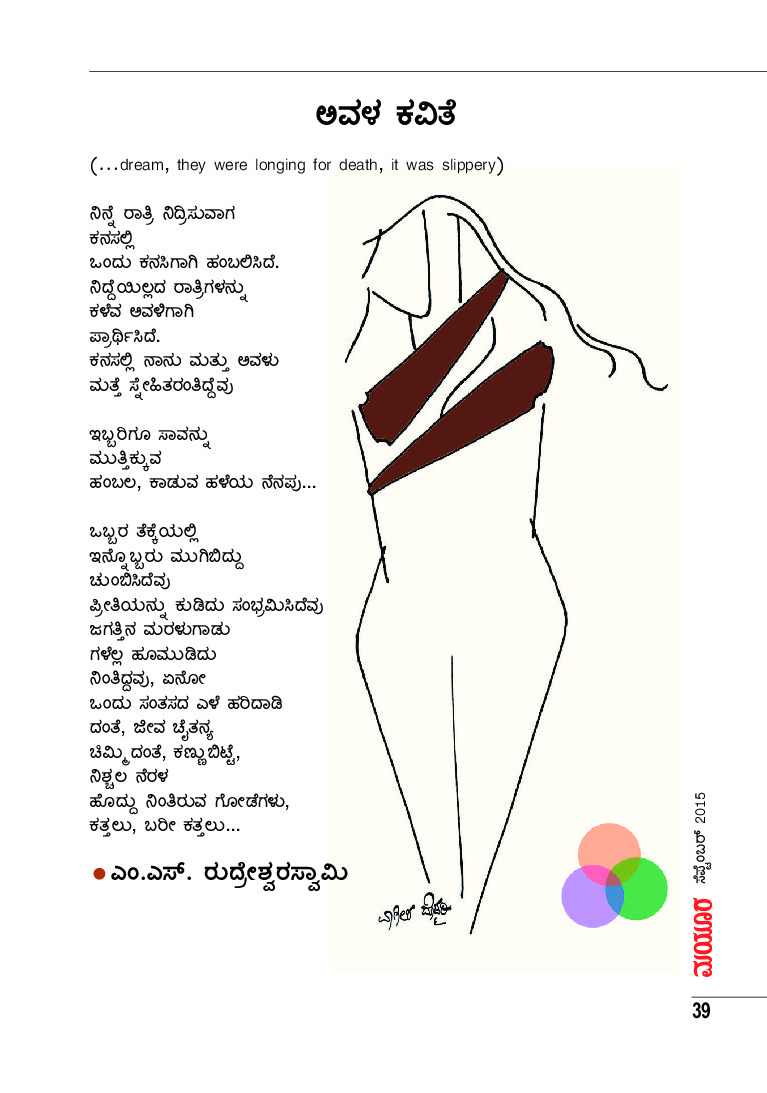 ಅವಳ ಕವಿತೆ
(...dream, they were longing for death, it was slippery)
ನಿನ್ನೆ ರಾತ್ರಿ ನಿದ್ರಿಸುವಾಗ
ಕನಸಲ್ಲಿ
ಒಂದು ಕನಸಿಗಾಗಿ ಹಂಬಲಿಸಿದೆ.
ನಿದ್ದೆಯಿಲ್ಲದ ರಾತ್ರಿಗಳನ್ನು
ಕಳೆವ ಅವಳಿಗಾಗಿ
ಪ್ರಾರ್ಥಿಸಿದೆ.
ಕನಸಲ್ಲಿ ನಾನು ಮತ್ತು ಅವಳು
ಮತ್ತೆ ಸ್ನೇಹಿತರಂತಿದ್ದೆವು
ಇಬ್ಬರಿಗೂ ಸಾವನ್ನು
ಮುತ್ತಿಕ್ಕುವ
ಹಂಬಲ, ಕಾಡುವ ಹಳೆಯ ನೆನಪು...
ಒಬ್ಬರ ತೆಕ್ಕೆಯಲ್ಲಿ
ಇನ್ನೊಬ್ಬರು ಮುಗಿಬಿದ್ದು
ಚುಂಬಿಸಿದೆವು
ಪ್ರೀತಿಯನ್ನು ಕುಡಿದು ಸಂಭ್ರಮಿಸಿದೆವು
ಜಗತ್ತಿನ ಮರಳುಗಾಡು
ಗಳೆಲ್ಲ ಹೂಮುಡಿದು
ನಿಂತಿದ್ದವು, ಏನೋ
ಒಂದು ಸಂತಸದ ಎಳೆ ಹರಿದಾಡಿ
ದಂತೆ, ಜೀವ ಚೈತನ್ಯ
ಚಿಮ್ಮಿದಂತೆ, ಕಣ್ಣುಬಿಟ್ಟೆ,
ನಿಶ್ಚಲ ನೆರಳ
ಹೊದ್ದು ನಿಂತಿರುವ ಗೋಡೆಗಳು,
ಕತ್ತಲು, ಬರೀ ಕತ್ತಲು...
●ಎಂ.ಎಸ್. ರುದ್ರೇಶ್ವರಸ್ವಾಮಿ
ಮಯೂರ ಸೆಪ್ಟೆಂಬರ್ 2015
39